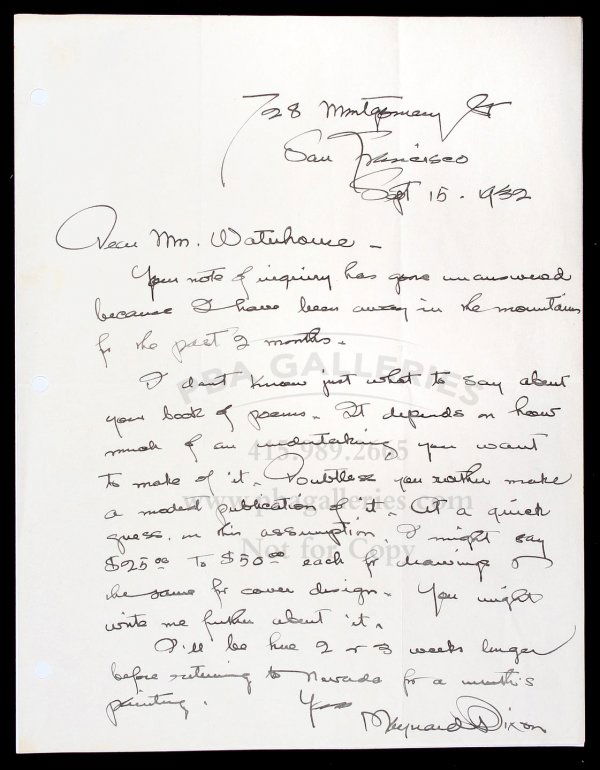 728 Montgomery St
San Francisco
Sept 15 - 1932
Dear Mr. Waterhouse -
Your note of inquiry has gone unanswered
because I have been away in the mountains
for the past 2 months.
PBA GALLERIES
I don't know just what to say about
your book of poems. It depends on how
much of an undertaking you want
415.989.2665
to make of it. Doubtless you rather make
www.pbagalleries.com
a modest publication of it. At a quick
guess, on this assumption, I might say
Not for Copy
$25.00 to $50.00 each for drawings &
the same for cover design. You might
write me further about it.
I'll be here 2 or 3 weeks longer
before returning to Nevada for a month's
painting.
Yrs
Maynard Dixon